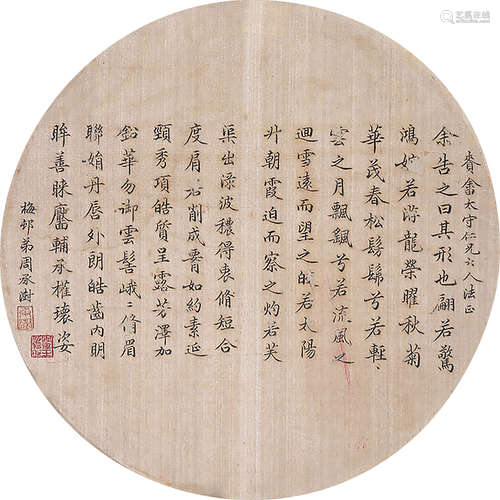 賚畬太守仁兄大人法正
余告之曰其形也翩若驚
鴻婉若游龍榮曜秋菊
華茂春松髣髴兮若輕、
雲之月飄颻兮若流風之
迴雪遠而望之皎若太陽
升朝霞迫而察之灼若芙
渠出淥波穠得衷脩短合
度肩若削成腰如約素延
頸秀項皓質呈露芳澤加
鉛華勿御雲髻峨〻脩眉
聯娟丹唇外朗皓齒內明
眸善睞靨輔承權瓌姿
梅邨弟周承澍
艺狐在线